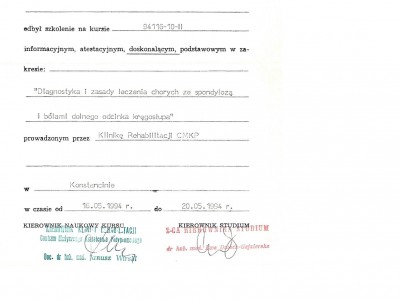 odbył szkolenie na kursie 94116-10-III
informacyjnym, atestacyjnym, doskonalącym, podstawowym w za-
kresie:
"Diagnostyka i zasady leczenia chorych ze spondylozą
i bólami dolnego odcinka kręgosłupa"
prowadzonym przez Klinikę Rehabilitacji CMKP
w Konstancinie
w czasie od 16.05.1994 r. do 20.05.1994 r.
KIEROWNIK NAUKOWY KURSU KIEROWNIK STUDIUM
KIEROWNIK KLINIKI REHABILITACJI
Z-CA KIEROWNIKA STUDIUM
Centrum Medycznego Kształcenia Podyplomowego
dr hab. med. Ewa
Doc. dr hab. med.